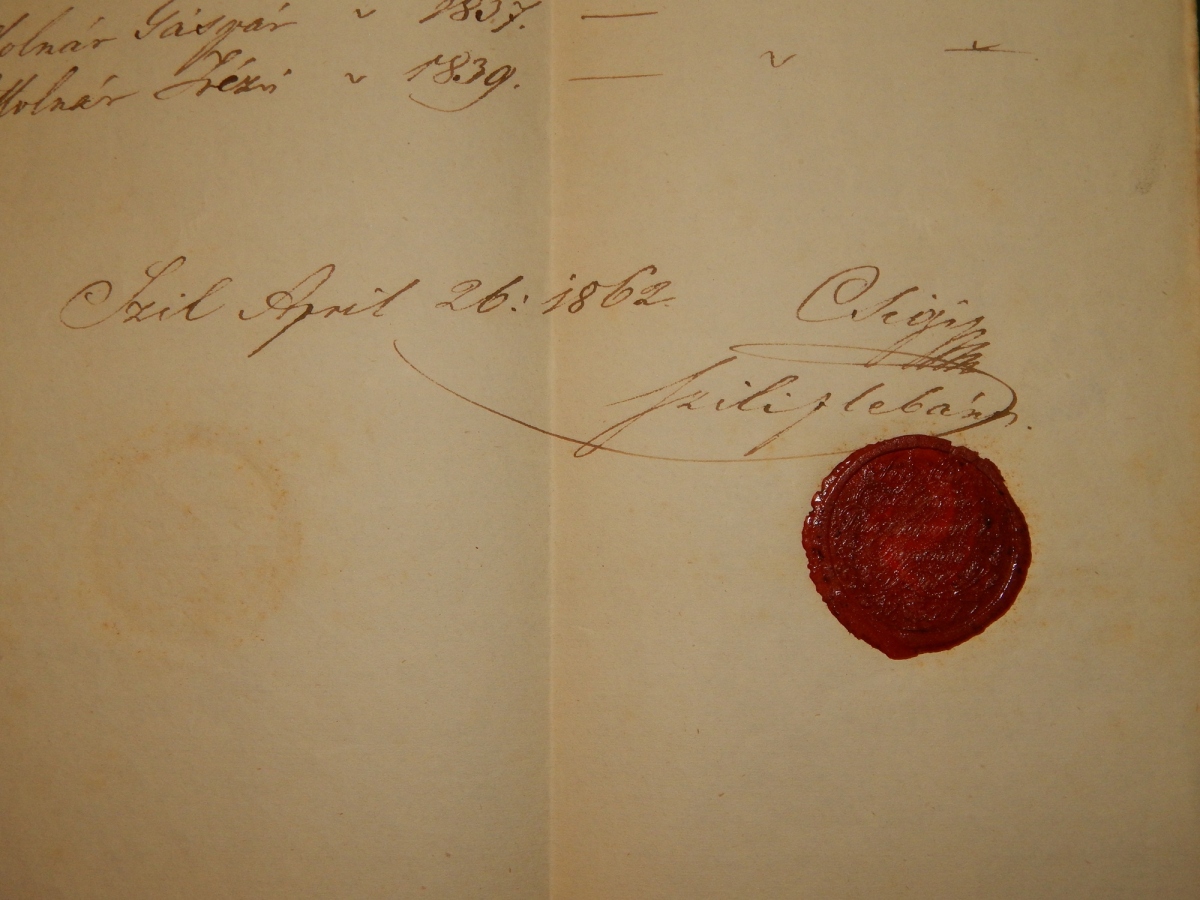 Molnár Gáspár ~ 1837. —
Molnár ~ 1839. — ~ —
Szil April 26: 1862.
Szili plebános.